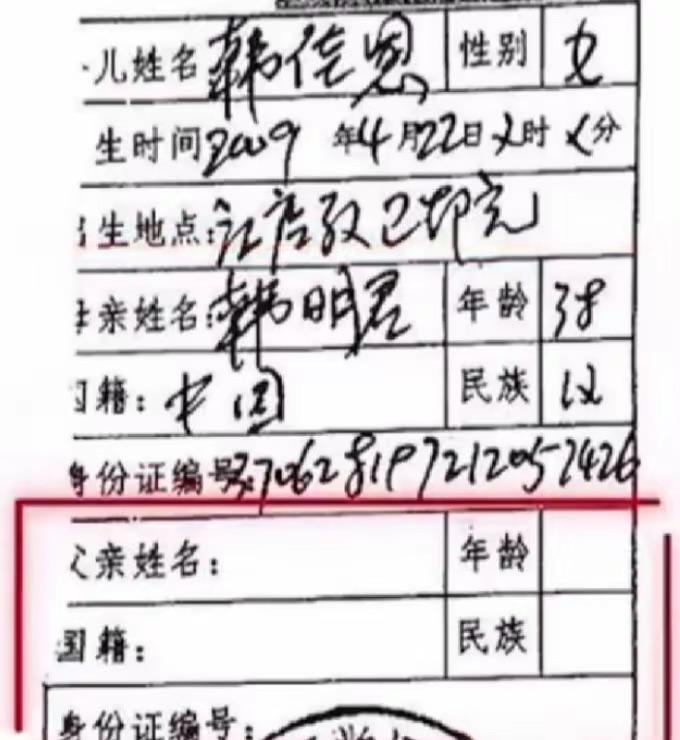 儿姓名 韩佳恩 性别 女
生时间 2009 年4月22日 X时 X分
生地点:
亲姓名: 韩明君 年龄 38
籍: 中国 民族 汉
身份证编号:
父亲姓名: 年龄
国籍: 民族
身份证编号: